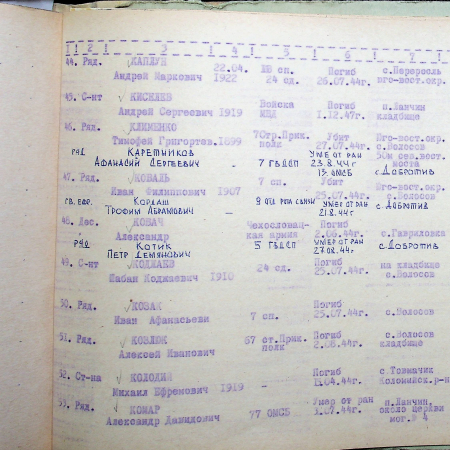 1 ! 2 ! 3 ! 4 ! 5 ! 6 ! 7
44. Ряд. КАПЛУН 22.04. 18 сп. Погиб с.Перерослъ
Андрей Маркович 1922 24 сд. 26.07.44г. юго-вост.окр.
45. С-нт КИСЕЛЕВ Войска Погиб п.Ланчин
Андрей Сергеевич 1919 НВД 1.12.47г. кладбище
46. Ряд. КЛИМЕНКО 70гр.Прик. Убит Юго-вост.окр.
Тимофей Григортев.1899 полк 25.07.44г. с.Волосов
РЯД КАРЕТНИКОВ УМЕР ОТ РАН 50м сев.вост.
АФАНАСИЙ СЕРГЕЕВИЧ - 7 ГВДСП 23.8.44г моста
13. ОМСБ с ДОБРОТИВ
47. Ряд. КОВАЛЬ 7 сп. Убит Юго-вост.окр.
Иван Филиппович 1907 25.07.44г. с.Волосов
ГВ. ЕФР. КОРДАШ 9 ОТД РОТА СВЯЗИ УМЕР ОТ РАН с ДОБРОТИВ
ТРОФИМ АБРАМОВИЧ - 21.8.44г
48. Лес. КОВАЧ Чехословац- Погиб с.Гавриловка
Александр - кая Армия 2.08.44г. окр.
РЯД КОТИК 5 ГВДСП УМЕР ОТ РАН с ДОБРОТИВ
ПЕТР ДЕМЯНОВИЧ 27.08.44г
49. С-нт КОДЖАЕВ 24 сд. Погиб на кладбище
Шабан Коджаевич 1910 25.07.44г. с.Волосов
50. Ряд. КОЗАК Погиб
Иван Афанасьеви 7 сп. 25.07.44г.
51. Ряд. КОЗЛЮК 67 ст.Прик. Погиб с.Волосов
Алексей Иванович полк 2.08.44г. кладбище
52. Ст-на КОЛОДИЙ Погиб с.Товмачик
Михаил Ефремович 1919 - 11.04.44г. Коломийск.р-н
53. Ряд. КОМАР Умер от ран п.Ланчин,
Александр Давидович 77 ОМСБ 3.07.44г. около церкви
мог.№ 4